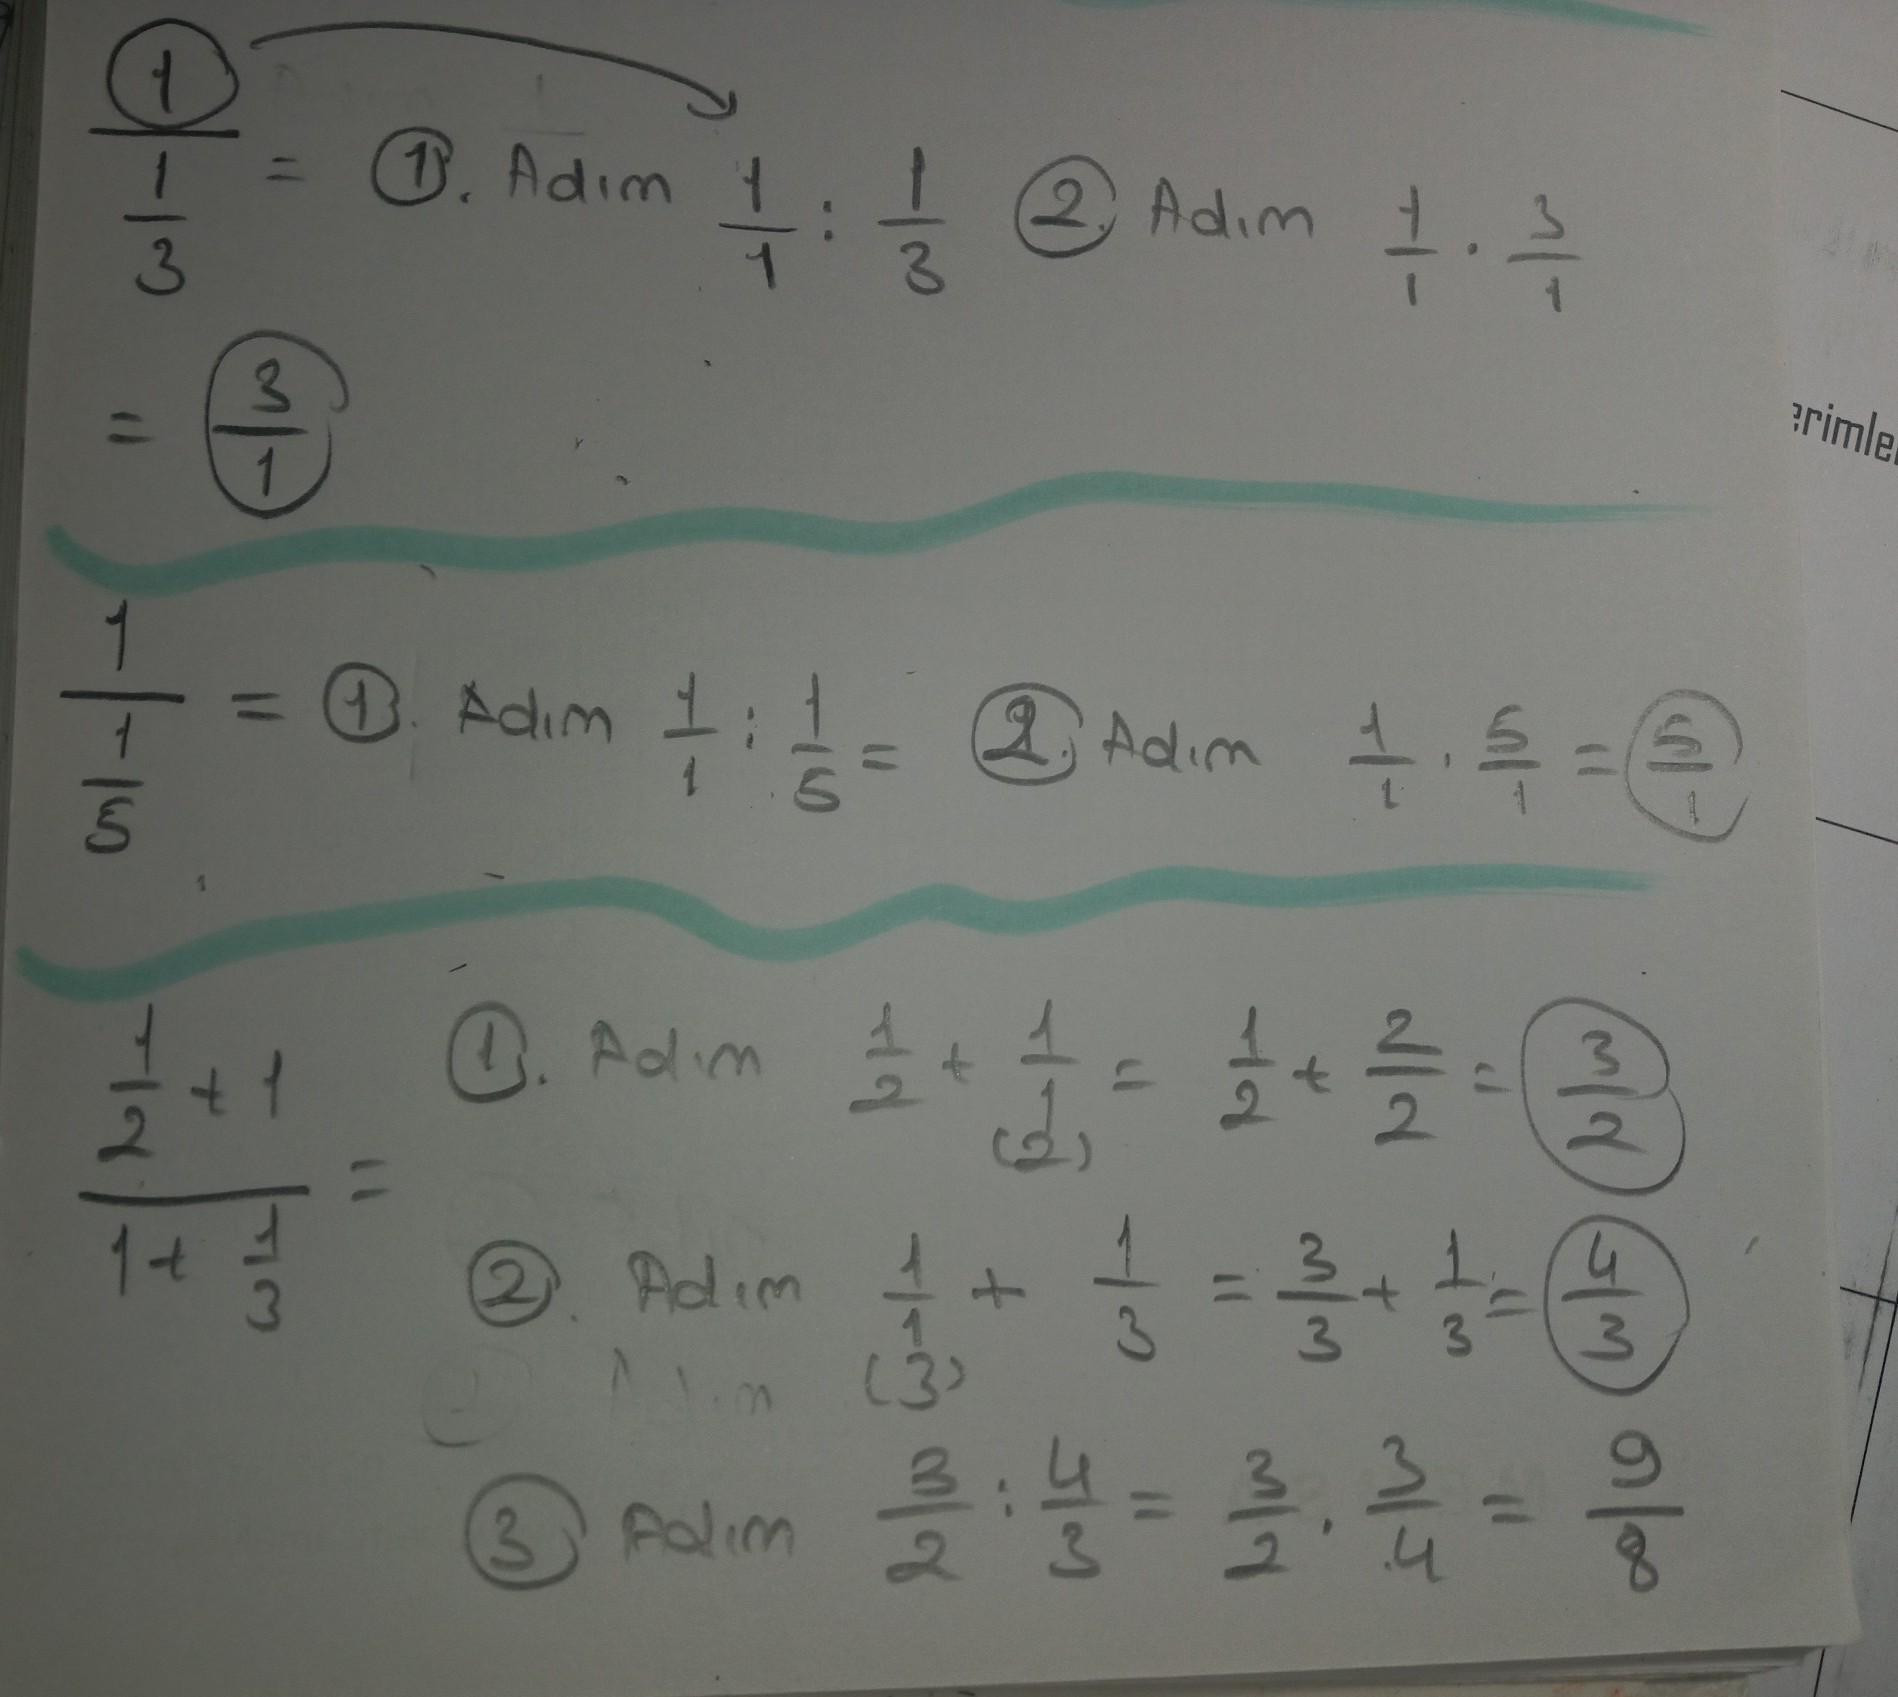 1/(1/3) = 1. Adım 1/1 : 1/3 2. Adım 1/1 . 3/1
= 3/1
1/(1/5) = 1. Adım 1/1 : 1/5 = 2. Adım 1/1 . 5/1 = 5/1
(1/2 + 1)/(1 + 1/3) =
1. Adım 1/2 + 1/1 (2) = 1/2 + 2/2 = 3/2
2. Adım 1/1 (3) + 1/3 = 3/3 + 1/3 = 4/3
3 Adım 3/2 : 4/3 = 3/2 . 3/4 = 9/8